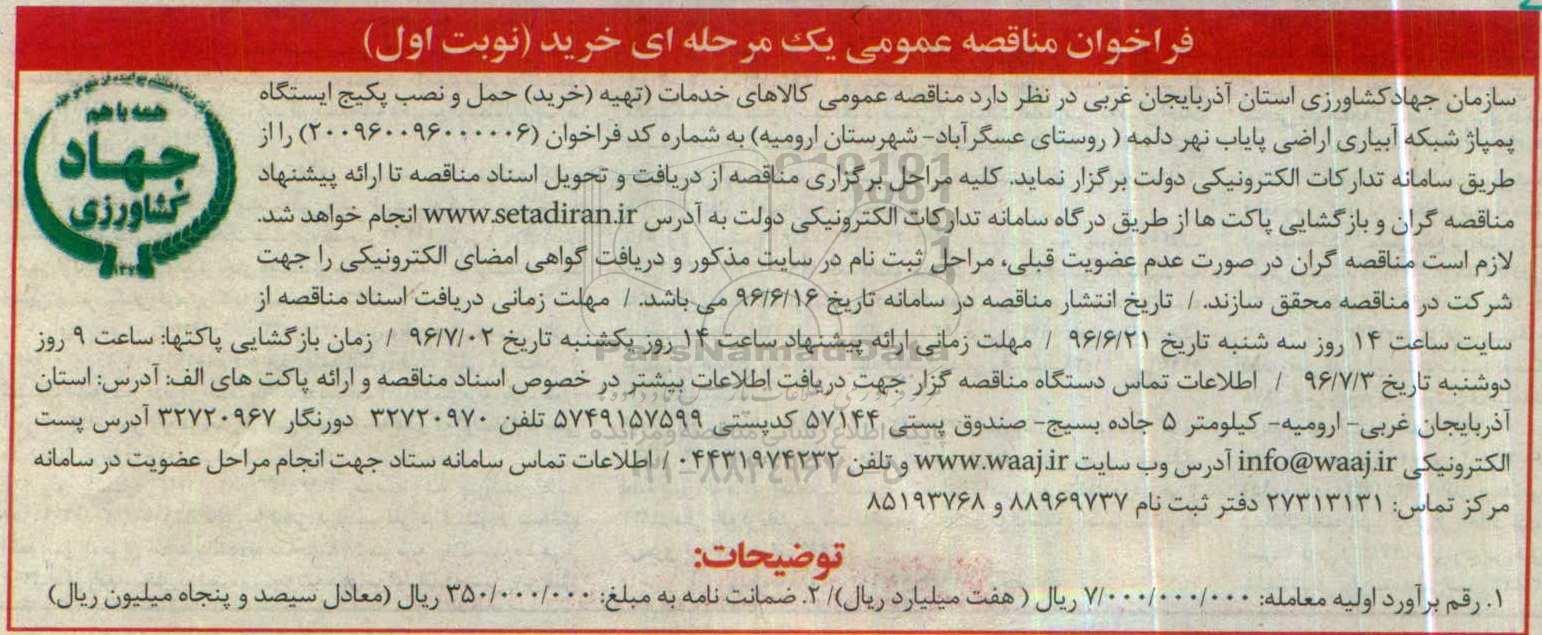 فراخوان مناقصه عمومی یک مرحله ای خرید (نوبت اول)
همه با هم
جهاد
کشاورزی
سازمان جهادکشاورزی استان آذربایجان غربی در نظر دارد مناقصه عمومی کالاهای خدمات (تهیه (خرید) حمل و نصب پکیج ایستگاه
پمپاژ شبکه آبیاری اراضی پایاب نهر دلمه ( روستای عسگرآباد- شهرستان ارومیه) به شماره کد فراخوان (۲۰۰۹۶۰۰۹۶۰۰۰۰۰۶) را از
طریق سامانه تدارکات الکترونیکی دولت برگزار نماید. کلیه مراحل برگزاری مناقصه از دریافت و تحویل اسناد مناقصه تا ارائه پیشنهاد
مناقصه گران و بازگشایی پاکت ها از طریق درگاه سامانه تدارکات الکترونیکی دولت به آدرس www.setadiran.ir انجام خواهد شد.
لازم است مناقصه گران در صورت عدم عضویت قبلی، مراحل ثبت نام در سایت مذکور و دریافت گواهی امضای الکترونیکی را جهت
شرکت در مناقصه محقق سازند. / تاریخ انتشار مناقصه در سامانه تاریخ ۹۶/۶/۱۶ می باشد. / مهلت زمانی دریافت اسناد مناقصه از
سایت ساعت ۱۴ روز سه شنبه تاریخ ۹۶/۶/۲۱ / مهلت زمانی ارائه پیشنهاد ساعت ۱۴ روز یکشنبه تاریخ ۹۶/۷/۰۲ / زمان بازگشایی پاکتها: ساعت ۹ روز
دوشنبه تاریخ ۹۶/۷/۳ / اطلاعات تماس دستگاه مناقصه گزار جهت دریافت اطلاعات بیشتر در خصوص اسناد مناقصه و ارائه پاکت های الف: آدرس: استان
آذربایجان غربی- ارومیه- کیلومتر ۵ جاده بسیج- صندوق پستی ۵۷۱۴۴ کدپستی ۵۷۴۹۱۵۷۵۹۹ تلفن ۳۲۷۲۰۹۷۰ دورنگار ۳۲۷۲۰۹۶۷ آدرس پست
الکترونیکی info@waaj.ir آدرس وب سایت www.waaj.ir و تلفن ۰۴۴۳۱۹۷۴۲۳۲ / اطلاعات تماس سامانه ستاد جهت انجام مراحل عضویت در سامانه
مرکز تماس: ۲۷۳۱۳۱۳۱ دفتر ثبت نام ۸۸۹۶۹۷۳۷ و ۸۵۱۹۳۷۶۸
توضیحات:
۱. رقم برآورد اولیه معامله: ۷/۰۰۰/۰۰۰/۰۰۰ ریال ( هفت میلیارد ریال)/ ۲. ضمانت نامه به مبلغ: ۳۵۰/۰۰۰/۰۰۰ ریال (معادل سیصد و پنجاه میلیون ریال)
ParsNamadData